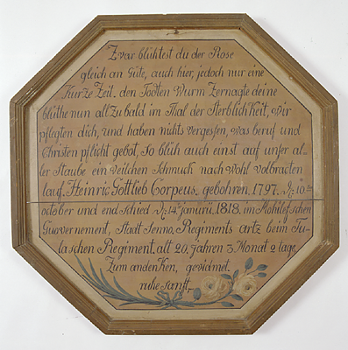 Zwar blühtest du der Rose
gleich an Güte, auch hier, jedoch nur eine
Kurze Zeit. den Todten Wurm Zernagte deine
blüthe nun all zu bald im Thal der Sterblichkeit, wir
pflegten dich, und haben nichts vergessen, was beruf und
Christen pflicht gebot, So blüh auch einst auf unser al-
ler Staube ein Veilchen Schmuck nach wohl volbrachten
lauf. Heinric Gottlieb Corpeus, gebohren, 1797.
october und end Schied januarii, 1818. im Mohilefschen
Guovernement, Stadt Senno, Regiments artz beim Tu-
laschen Regiment, alt 20, Jahren 3. Monat 2 tage,
Zum andenken, gewidmet.
ruhe sanft,